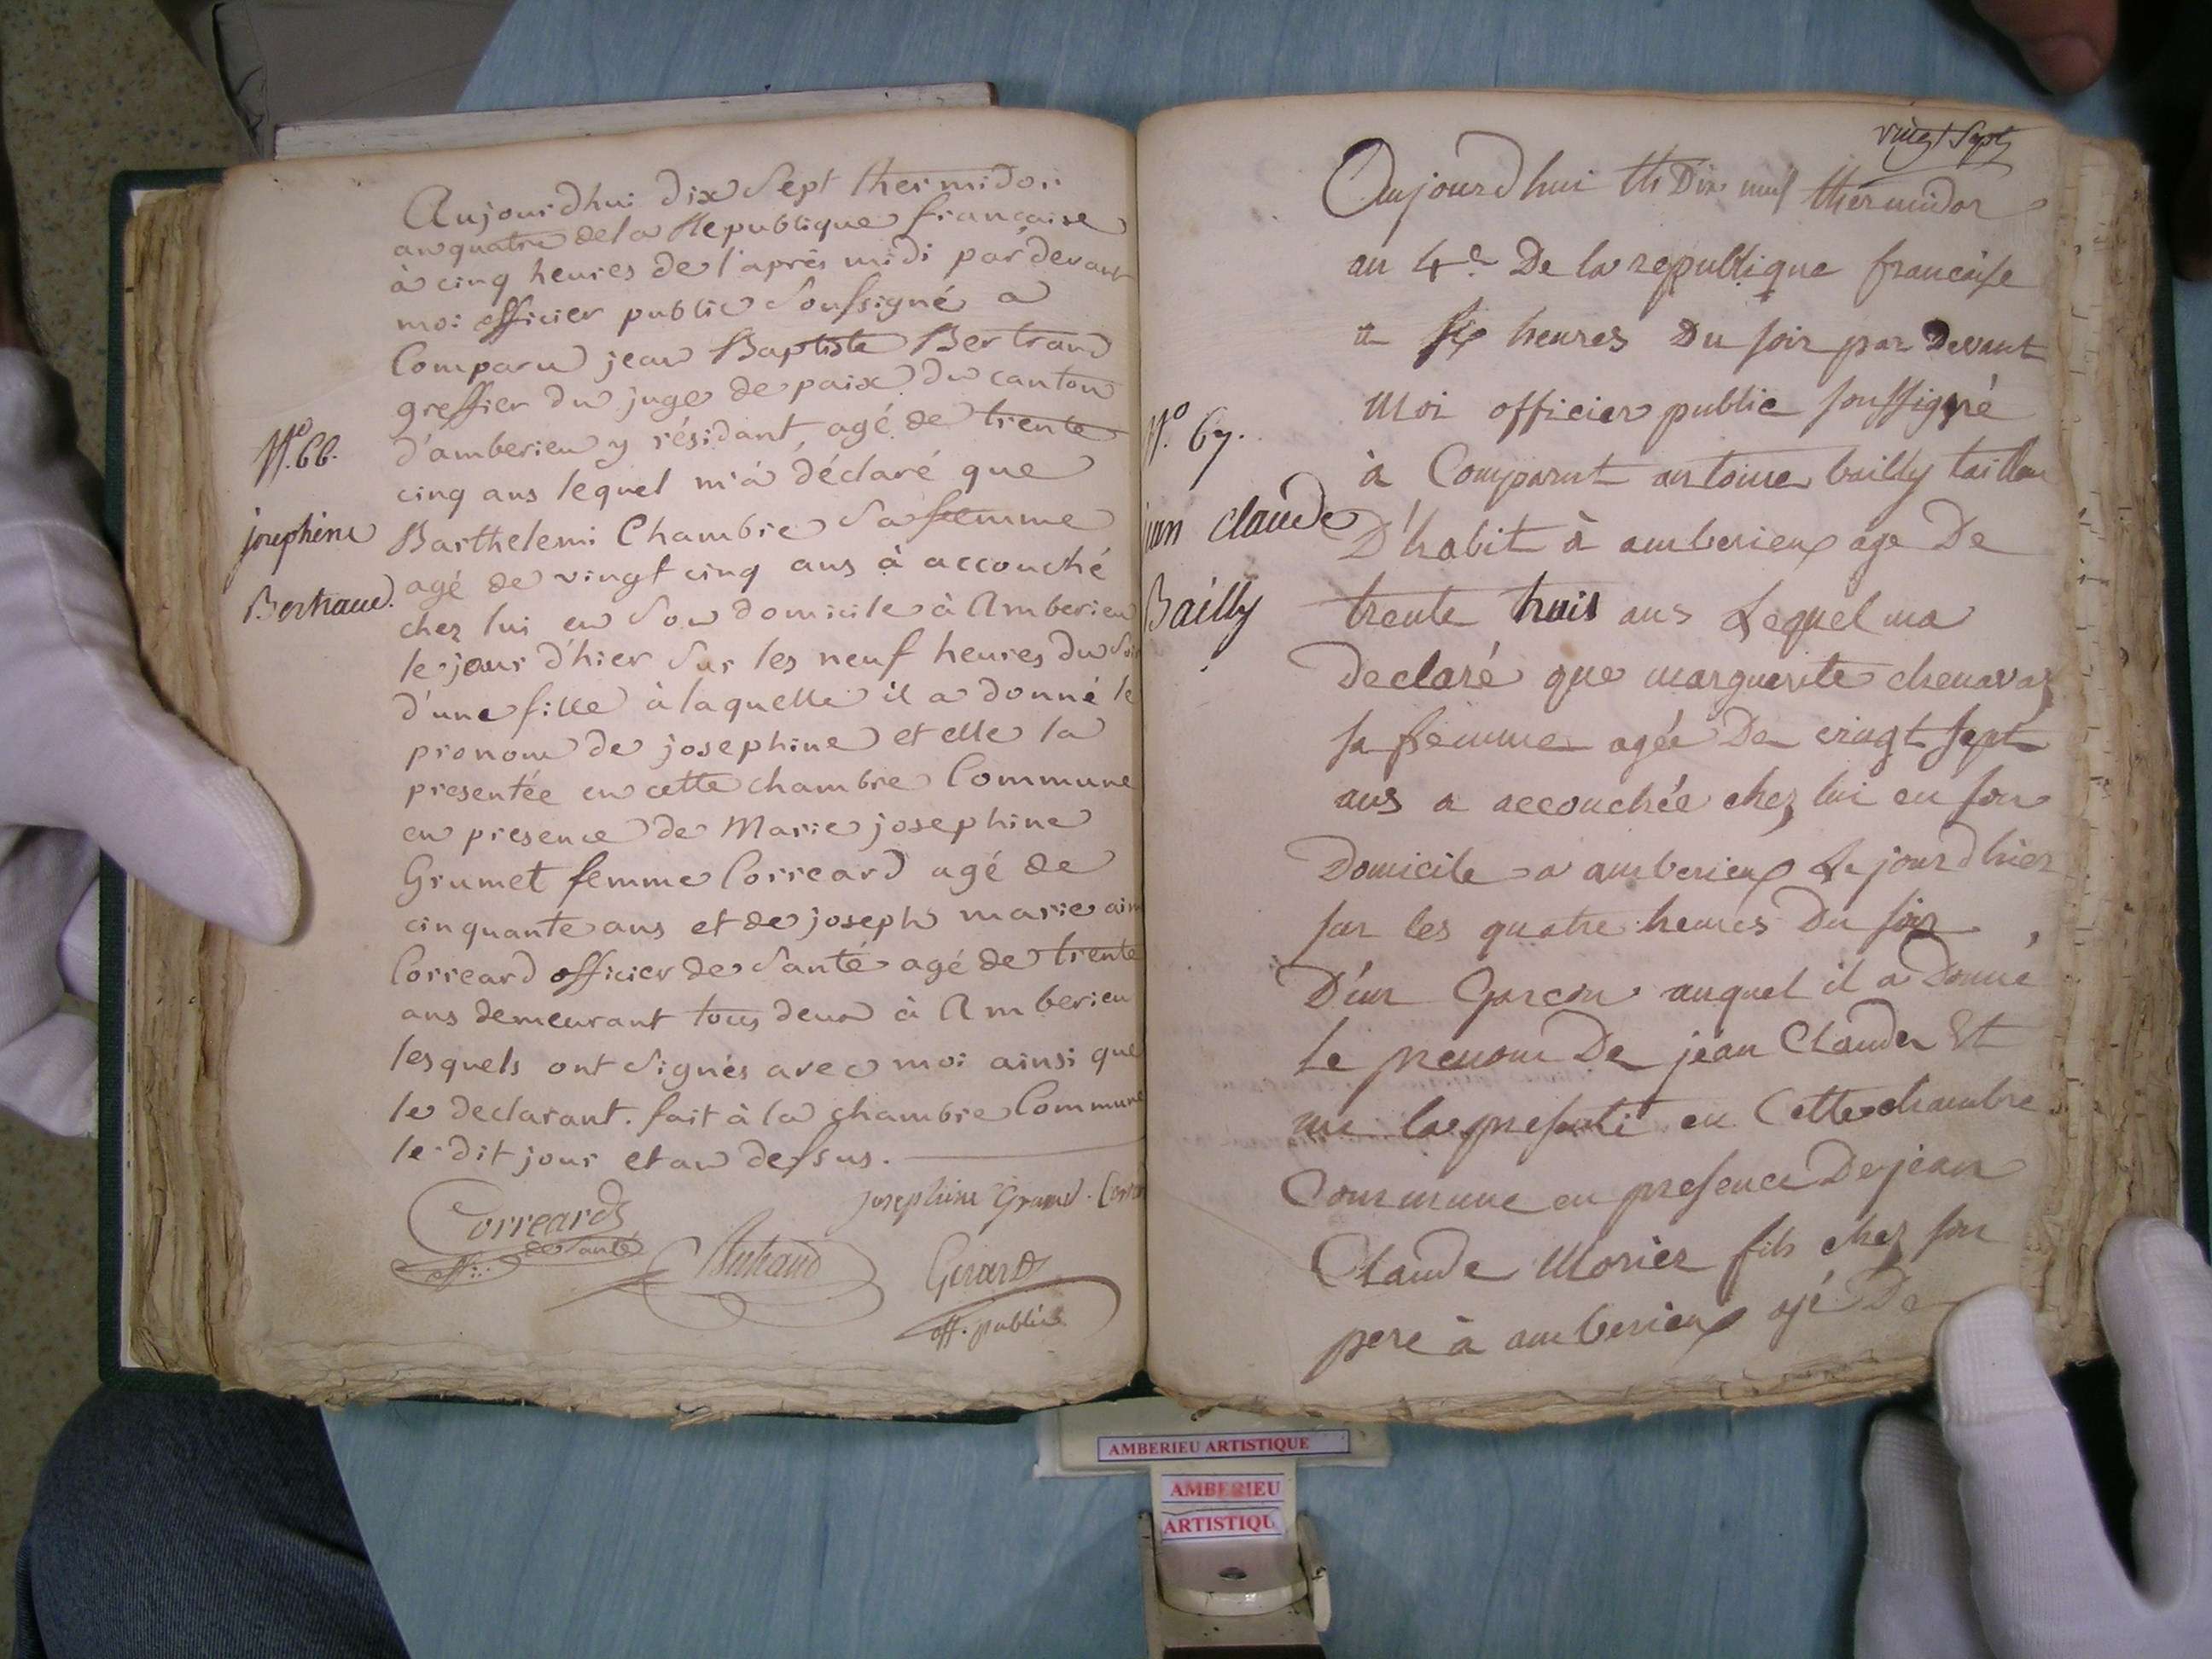 Aujourdhui dix Sept thermidor
an quatre de la Republique française
à cinq heures de l'après midi par devant
moi officier public Soussigné a
Comparu jean Baptiste Bertrand
greffier du juge de paix du canton
d'amberieu y résidant, agé de trente
cinq ans lequel m'a déclaré que
Barthelemi Chambre Sa femme
agé de vingt cinq ans à accouché
chez lui en Son domicile à Amberieu
le jour d'hier Sur les neuf heures du Soir
d'une fille à laquelle il a donné le
pronom de josephine et elle la
presentée en cette chambre Commune
en presence de Marie josephine
Grumet femme Correard agé de
cinquante ans et de joseph marie
Correard officier de Santé agé de trente
ans demeurant tous deux à Amberieu
lesquels ont Signés avec moi ainsi que
le declarant. fait à la chambre Commune
le dit jour et an dessus.
N.º 66.
josephine
Bertrand.
Correard
off. de Santé
josephine Grumet
Bertrand
Gerard
off. public
vingt Sept
Aujourdhui th Dix neuf thermidor
an 4e De la republique francaise
a Six heures Du soir par Devant
Moi officier public soussigné
à Comparut antoine bailly tailleur
D'habit à amberieux age De
trente trois ans Lequel ma
Declaré que marguerite chenavas
sa femme agée De vingt sept
ans a accouchée chez lui en son
Domicile a amberieux Le jourdhier
sur les quatre heures Du soir
D'un Garcon auquel il a Donné
Le prenom De jean Claude Et
me la presenté en Cette chambre
Commune en presence De jean
Claude Morier fils chez son
pere à amberieux agé De
N.º 67.
jean Claude
Bailly
AMBERIEU ARTISTIQUE
AMBERIEU
ARTISTIQU